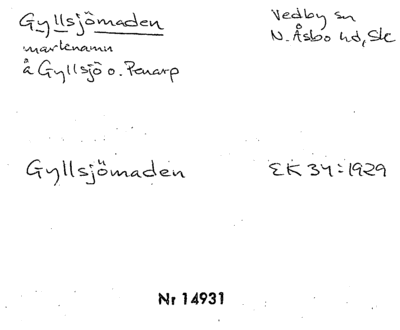 Gyllsjömaden
Vedby sn
marknamn
N. Åsbo hd, Sk
å Gyllsjö o. Penarp
Gyllsjömaden
EK 34:1929
Nr 14931